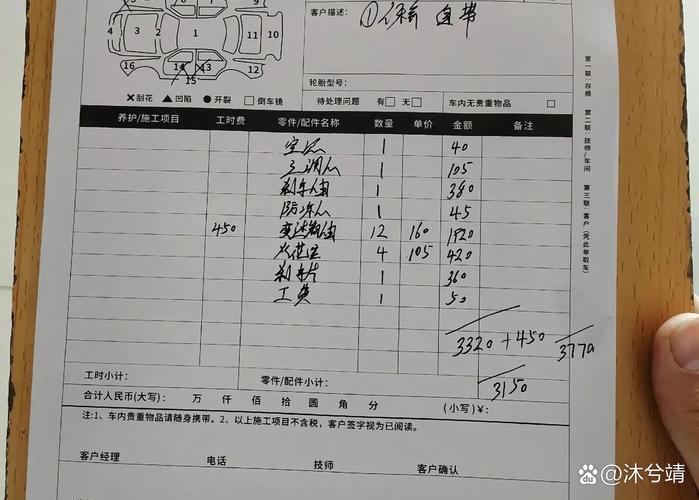 客户描述: ①保养 自带
4 3 2 1 11 10
16 14 13 12
15
轮胎型号:
✕刮花 ▲凹陷 ●开裂 □倒车镜
待处理问题 有□ 无□ 车内无贵重物品 □
养护/施工项目 工时费 零件/配件名称 数量 单价 金额 备注
空滤 1 40
空调滤 1 105
刹车油 1 380
防冻液 1 45
450 变速箱油 12 160 1920
火花塞 4 105 420
刹车片 1 360
工费 1 50
3320+450
3770
工时小计: 零件/配件小计:
3150
合计人民币(大写): 万 仟 佰 拾 圆 角 分 (小写)¥:
注:1、车内贵重物品请随身携带。2、以上施工项目不含税,客户签字视为已阅读。
客户经理 电话 技师 客户确认
第一联:存根 第二联:技师/车间 第三联:客户(凭此单取车)
Bai du 百科 @沐兮靖